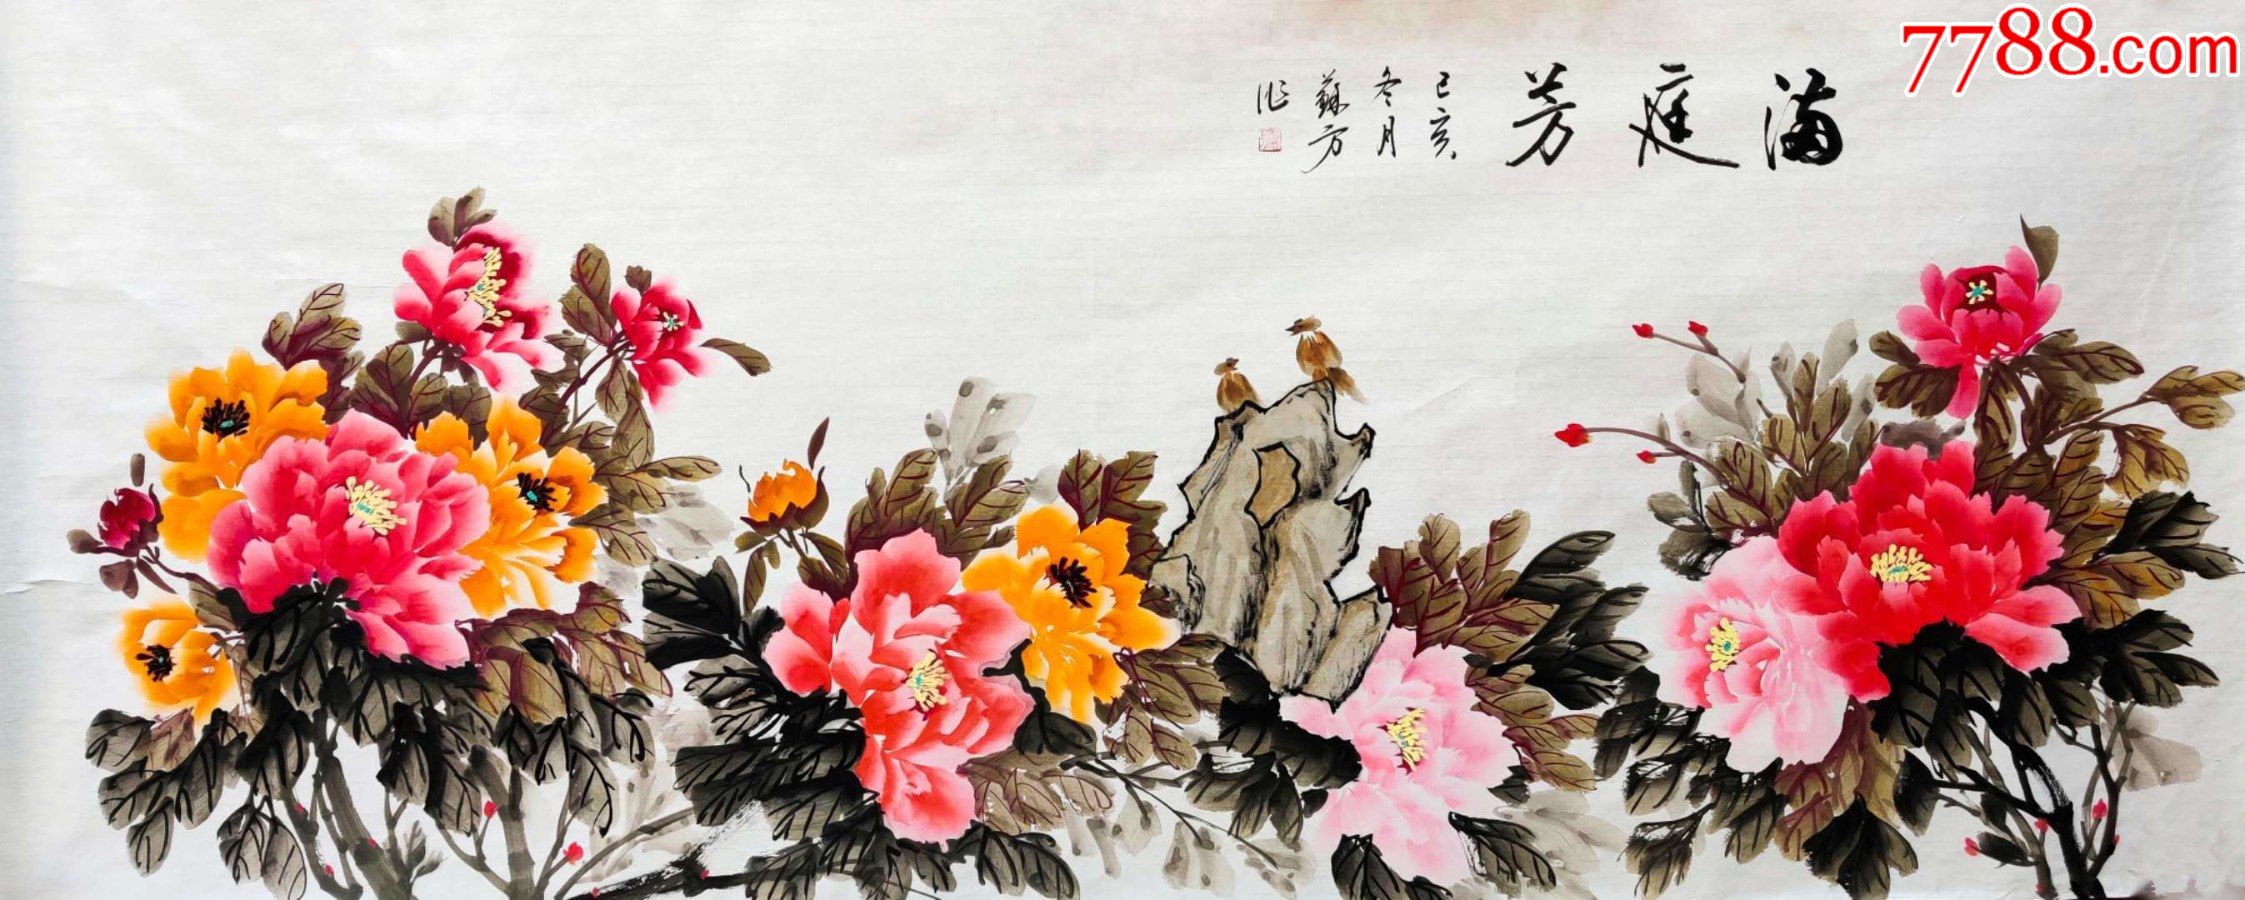 7788.com
满庭芳
己亥
冬月
苏方
作